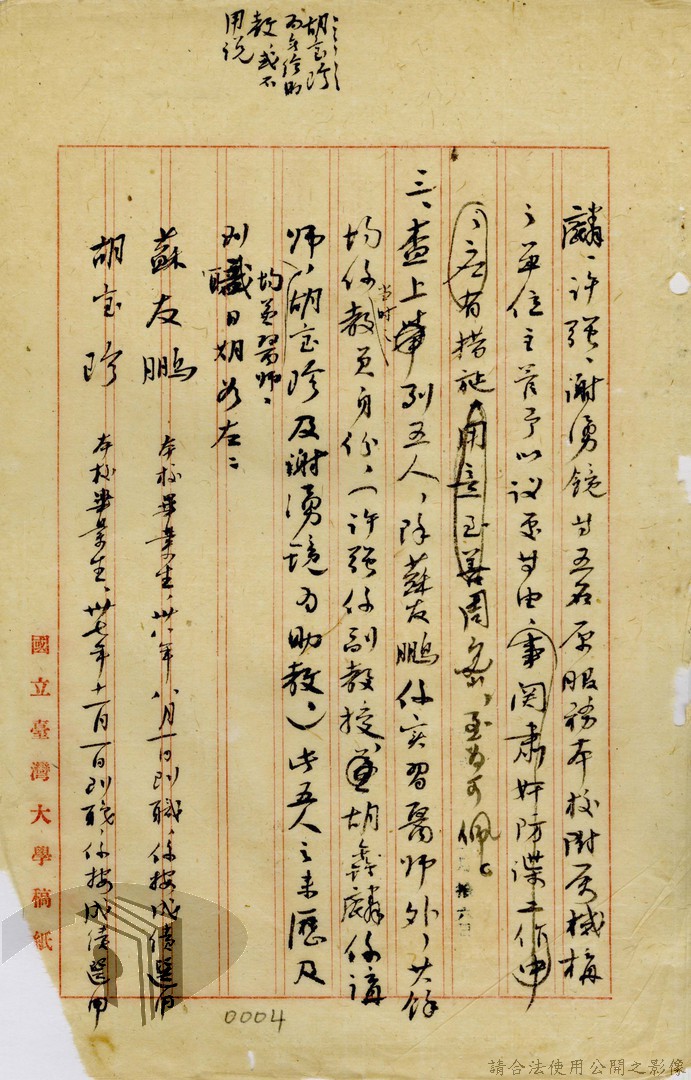 胡宝珍
麟、許强、謝湧鏡等五名原服務本校附屬機構
之單位主管予以議處等由事関肅奸防諜工作中
之應有措施用意至善周密，至為可佩。
三、查上列五人，除蘇友鹏係实習醫師外，其餘
當時
均係教員身份，（許强係副教授，胡鑫麟係講
師，胡宝珍及謝湧鏡为助教，）此五人之来歷及
均兼醫師
到職日期为左：
蘇友鵬 本校畢業生，卅八年八月一日到職，係按成績選用
胡宝珍 本校畢業生，卅七年十一月一日到職，係按成績選用
國立臺灣大學稿紙
0004
請合法使用公開之影像